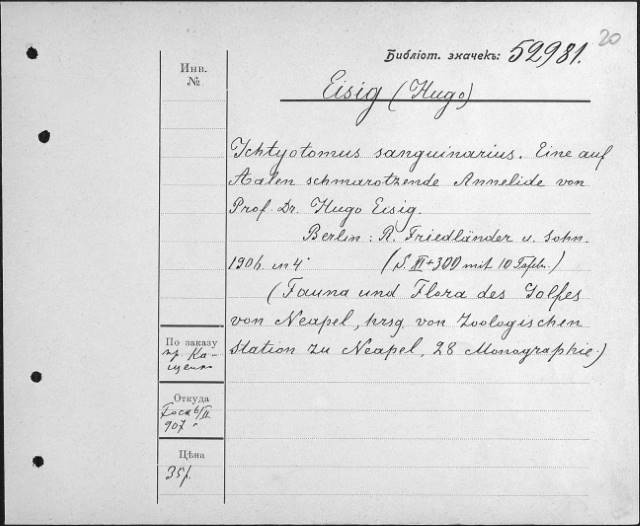 20
Библіот. значекъ: 52981.
Инв.
№
Eisig (Hugo)
Ichtyotomus sanguinarius. Eine auf
Aalen schmarotzende Annelide von
Prof. Dr. Hugo Eisig.
Berlin: R. Friedländer u. Sohn.
1906. in 4° (S. + 300 mit 10 Tafeln.)
(Fauna und Flora des Golfes
von Neapel, hrsg. von Zoologischen
Station zu Neapel, 28 Monographie.)
По заказу
пр. Ка-
щенко
Откуда
6/II
907
Цѣна
35 р.